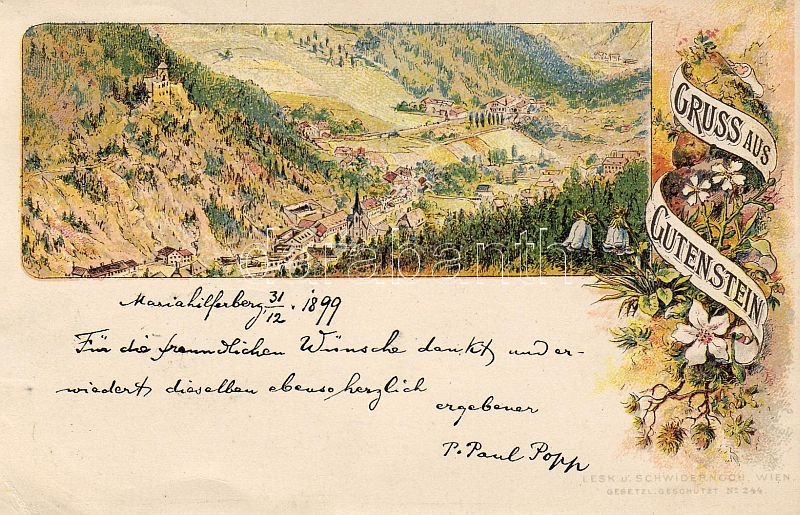 GRUSS AUS
GUTENSTEIN
darabanth
Mariahilferberg, 31/12. 1899
Für die freundlichen Wünsche dankt und er-
wiedert dieselben ebenso herzlich
ergebener
P. Paul Popp
LESK U. SCHWIDERNOCH, WIEN.
GESETZL. GESCHÜTZT No 244.